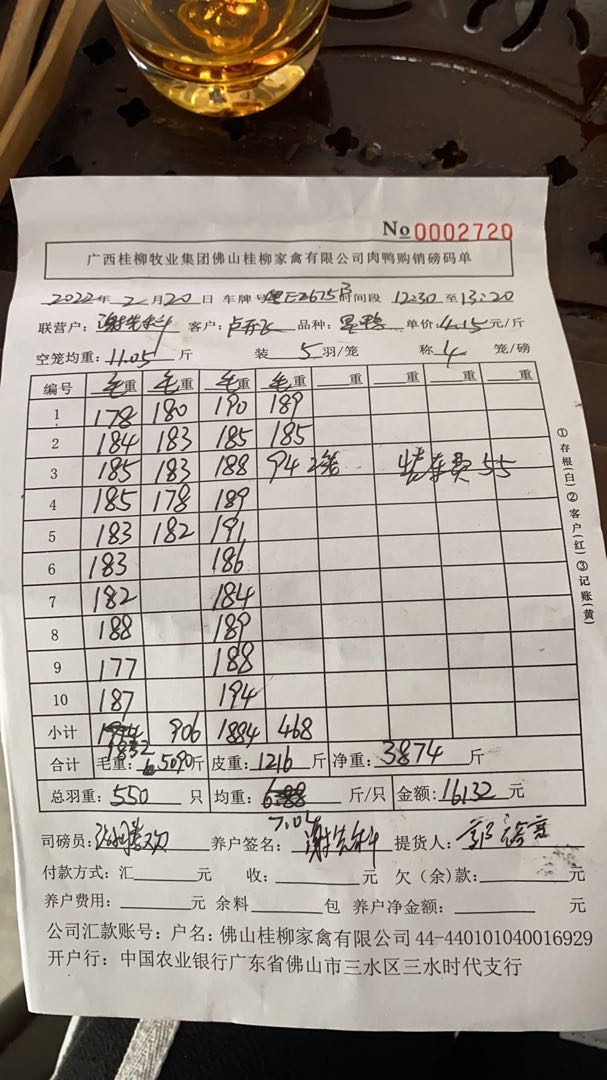 No 0002720
广西桂柳牧业集团佛山桂柳家禽有限公司肉鸭购销磅码单
2022年2月20日 车牌号 粤E26753 时间段 12:30 至 13:20
联营户： 客户： 品种： 单价：4.15元/斤
空笼均重：11.05斤 装 5 羽/笼 称 4 笼/磅
编号 毛重 毛重 毛重 毛重 重 重 重 重
1 178 180 190 189
2 184 183 185 185
3 185 183 188 94 2笼 装车费 55
4 185 178 189
5 183 182 191
6 183 186
7 182 184
8 188 189
9 177 188
10 187 194
小计 1832 906 1884 468
合计 毛重：5090斤 皮重：1216斤 净重：3874斤
总羽重：550只 均重：7.04斤/只 金额：16132元
司磅员： 养户签名： 提货人：
付款方式：汇 元 收： 元 欠（余）款： 元
养户费用： 元 余料 包 养户净金额： 元
公司汇款账号：户名：佛山桂柳家禽有限公司 44-440101040016929
开户行：中国农业银行广东省佛山市三水区三水时代支行
①存根(白)②客户(红)③记账(黄)